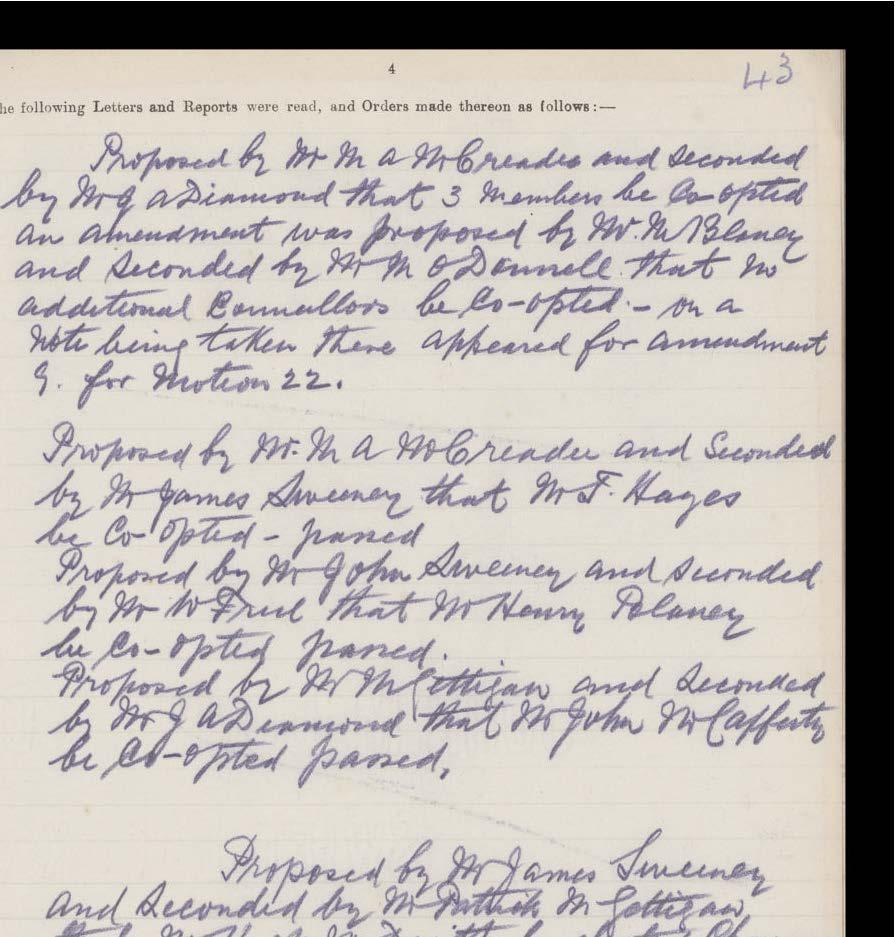 4
43
he following Letters and Reports were read, and Orders made thereon as follows:—
Proposed by Mr M A McCreadie and seconded
by Mr J A Diamond that 3 members be Co-opted
an amendment was proposed by Mr. M Blaney
and seconded by Mr M O Donnell that no
additional Councillors be Co-opted - on a
Vote being taken there appeared for amendment
9. for Motion 22.
Proposed by Mr. M A McCreadie and Seconded
by Mr James Sweeney that Mr F. Hayes
be Co-opted - passed
Proposed by Mr John Sweeney and seconded
by Mr W Friel that Mr Henry Blaney
be Co-opted passed.
Proposed by Mr McGettigan and seconded
by Mr J A Diamond that Mr John McCafferty
be Co-opted passed,
Proposed by Mr James Sweeney
and seconded by Mr Patrick McGettigan